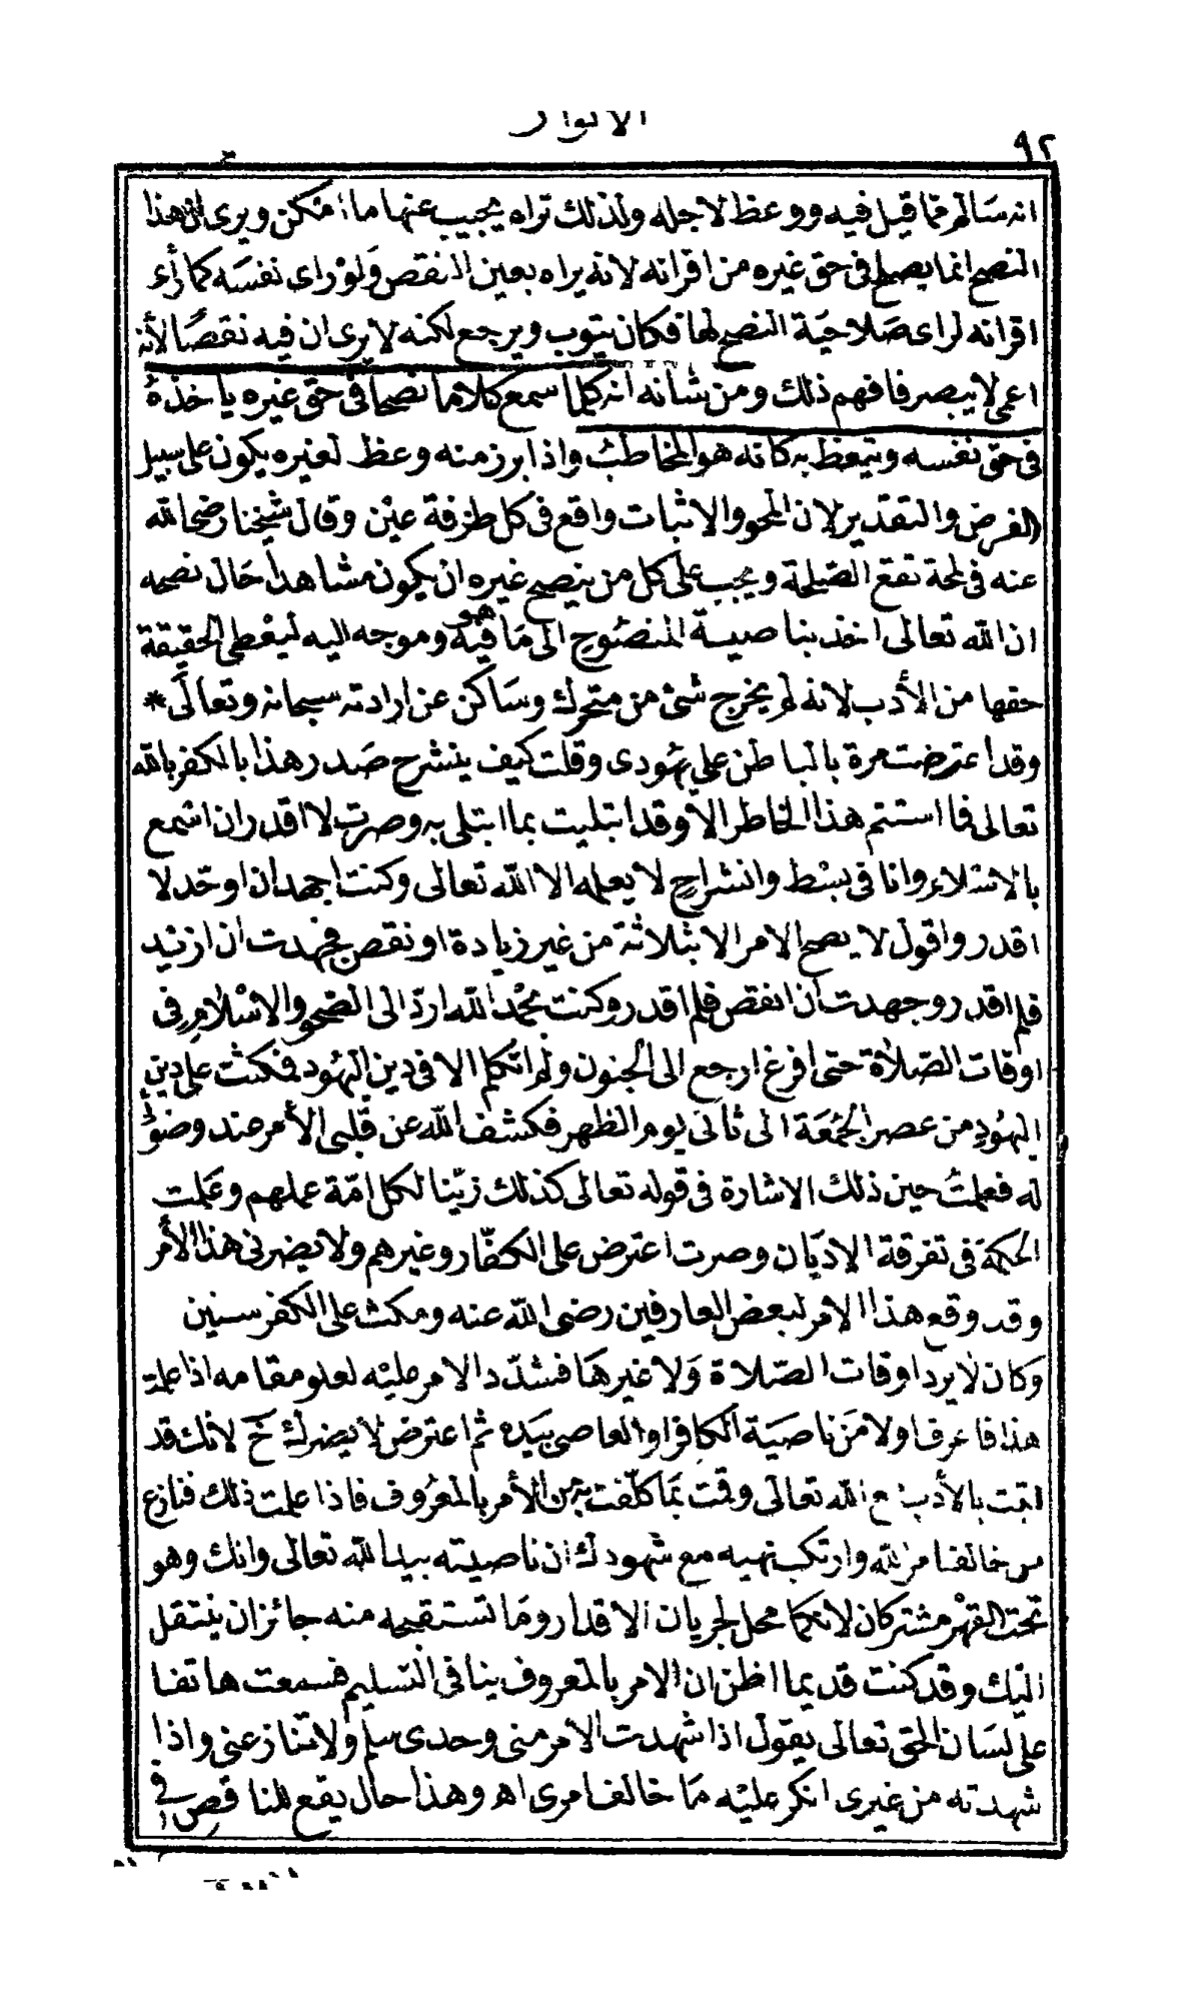 الانوار
٩٢
انه سَالم مما قيل فيه ووعظ لاجله ولذلك تراه يجيب عنها ما امكن ويرى ان هذا
النصح انما يصلح فى حق غيره من اقرانه لانه يراه بعين النقص وَلوْ راى نفسَه كما رأى
اقرانه لراى صَلاحيَة النصح لها فكان يتوب ويرجع لكنه لا يرى ان فيه نقصًا لأنه
اعمى لا يبصر فافهم ذلك ومن شأنه انه كلما سمع كلاما نصحا فى حق غيره ياخذهُ
فى حق نفسه ويتعظ به كانه هو المخاطب واذا برز منه وعظ لغيره يكون على سبيل
الفرض والتقدير لان المحو والاثبات واقع فى كل طرفة عيْن وقال شيخنا رضى الله
عنه فى لمحة تقع الصّلحة ويجب على كل من ينصح غيره ان يكون مشاهدا حَال نصحه
ان الله تعالى اخذ بناصيـة المنصُوح الى مَا هو فيْه وموجه اليه ليعْطى الحقيقة
حقها من الأدب لانه لم يخرج شئ من متحرك وسَاكن عن ارادته سبحانه وتعالَى *
وقد اعترضت مرة بالباطن على يهُودى وقلت كيف ينشرح صَدر هذا بالكفر بالله
تعالى فما استتم هذا الخاطر الا وقد ابتليت بما ابتلى به وصرت لا اقدر ان اسمع
بالاسْلام وانا فى بسْط وانشراح لا يعلمه الا الله تعالى وكنت اجهد ان اوحّد لا
اقدر واقول لا يصح الامر الا بثلاثة من غير زيادة او نقص فجهدت ان ازيد
فلم اقدر وجهدت ان انقص فلم اقدر وكنت بحمْد الله اردّ الى الصَّحو والاسْلام فى
اوقات الصّلاة حتى افرغ ارجع الى الجنون ولم اتكلم الا فى دين اليهُود فمكثت على دين
اليهُود من عصر الجُمُعَة الى ثانى يوم الظهر فكشف الله عن قلبى الأمر عند وضوئى
له فعلمتُ حين ذلك الاشارة فى قوله تعالى كذلك زيّنا لكل امّة عملهم وعَلمت
الحكمة فى تفرقة الاديَان وصرت اعترض على الكفّار وغيرهم ولا يضرنى هذا الأمر
وقد وقع هذا الامر لبعض العارفين رضى الله عنه ومكث على الكفر سنين
وَكان لا يرد اوقات الصّلاة وَلا غيرهَا فشدّد الامر عليْه لعلو مقامه اذا علمت
هذا فاعرف اولا مَن ناصيَة الكافر او العاصى بيَده ثم اعترض لا يضرك ح لانك قد
اتيت بالأدب مع الله تعالى وقمت بمَا كلّفت به من الأمر بالمعرُوف فاذا علمت ذلك فنازع
من خالف امر الله وارتكب نهيه مع شهودك ان ناصيته بيد الله تعالى وانك وهو
تحت القهْر مشتركان لانكما محل لجريان الاقدار ومَا تستقبحه منه جائز ان ينتقل
اليْك وقد كنت قديما اظن ان الامر بالمعروف ينافى التسليم فسمعت هاتفا
على لسَان الحق تعالى يقول اذا شهدت الامر منى وحدى سلم ولا تنازعنى واذا
شهدته من غيرى انكر عليْه مَا خالف امرى اه وهذا حال يقع للناقص فى